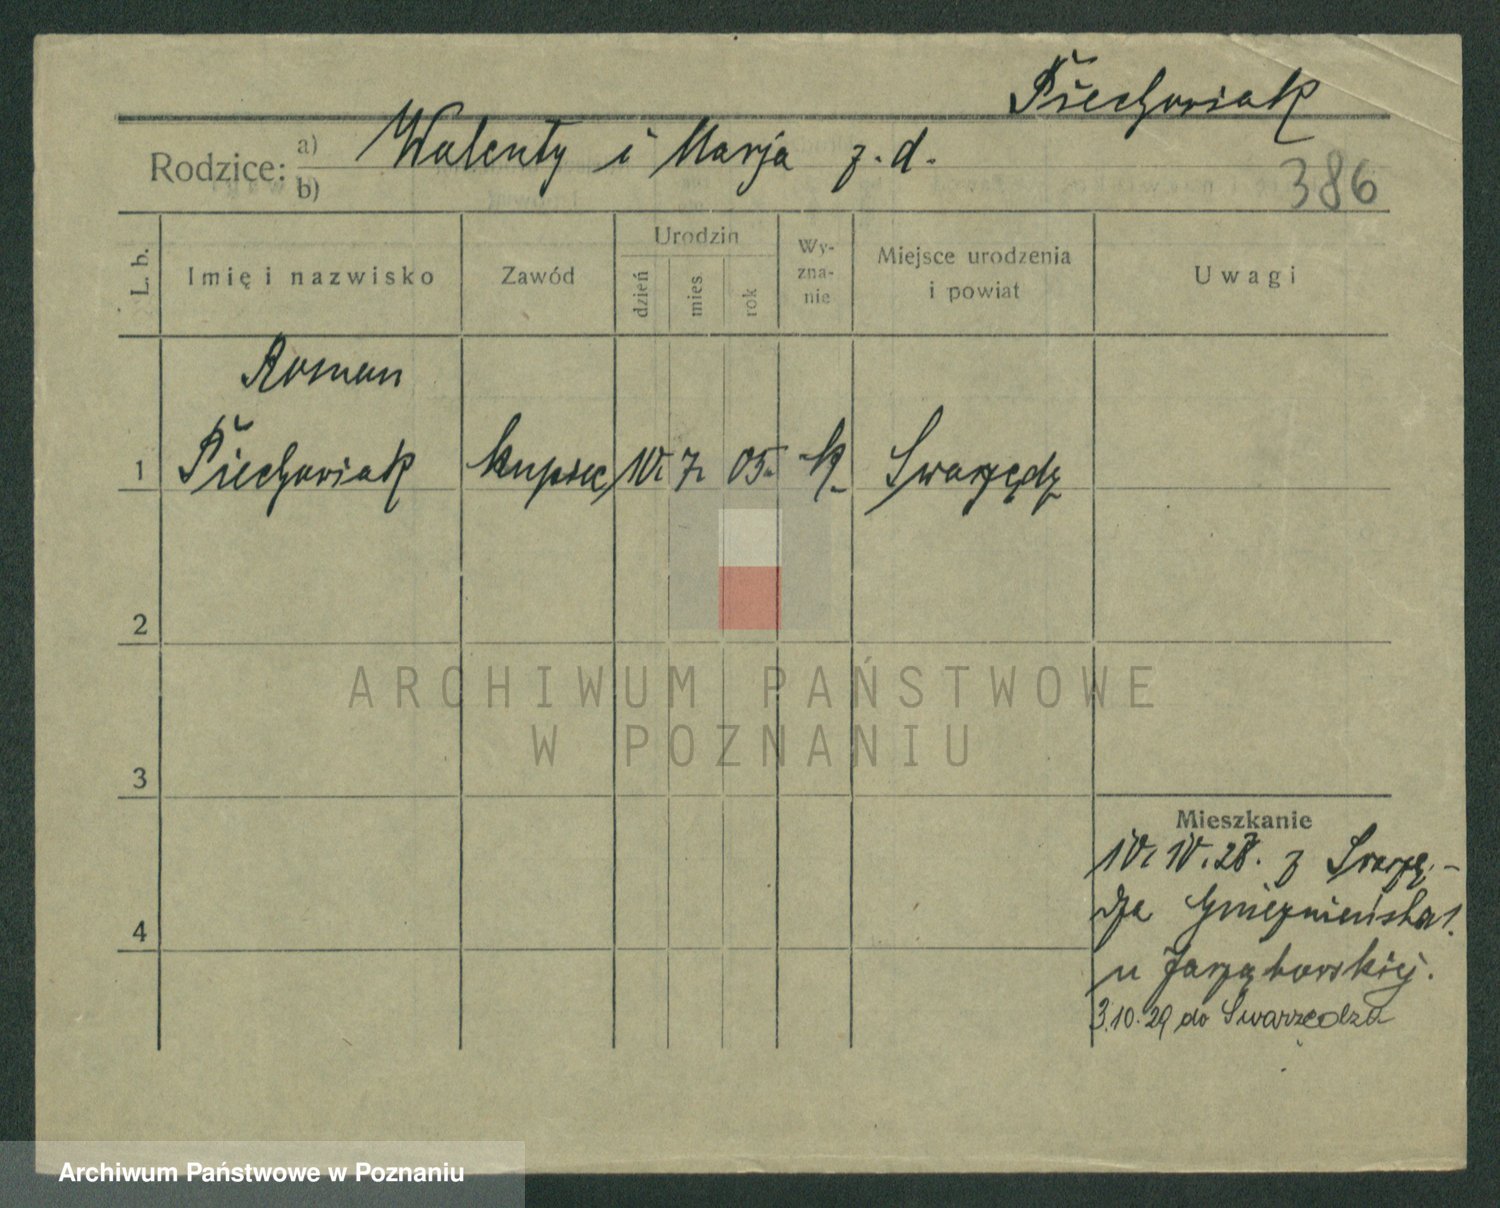 Piechowiak
Rodzice: a) Walenty i Marja z. d.
b)
386
L. b.
Imię i nazwisko
Zawód
Urodzin
dzień
mies
rok
Wy-
zna-
nie
Miejsce urodzenia
i powiat
Uwagi
Roman
1 Piechowiak kupiec 10. 7. 05. k. Swarzędz
2
3
4
ARCHIWUM PAŃSTWOWE
W POZNANIU
Mieszkanie
10. 10. 28. z Swarzę-
dza Gnieźnieńska 1.
u Jarzęborskiej.
3.10.29 do Swarzędza
Archiwum Państwowe w Poznaniu